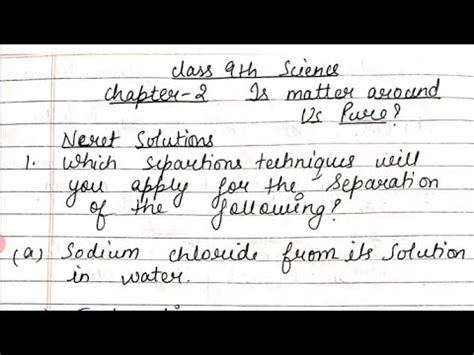 class 9th Science
Chapter-2 Is matter around
Us Pure?
Neret Solutions
1. Which separtions techniques will
you apply for the Separation
of the following?
(a) Sodium chloride from its solution
in water.